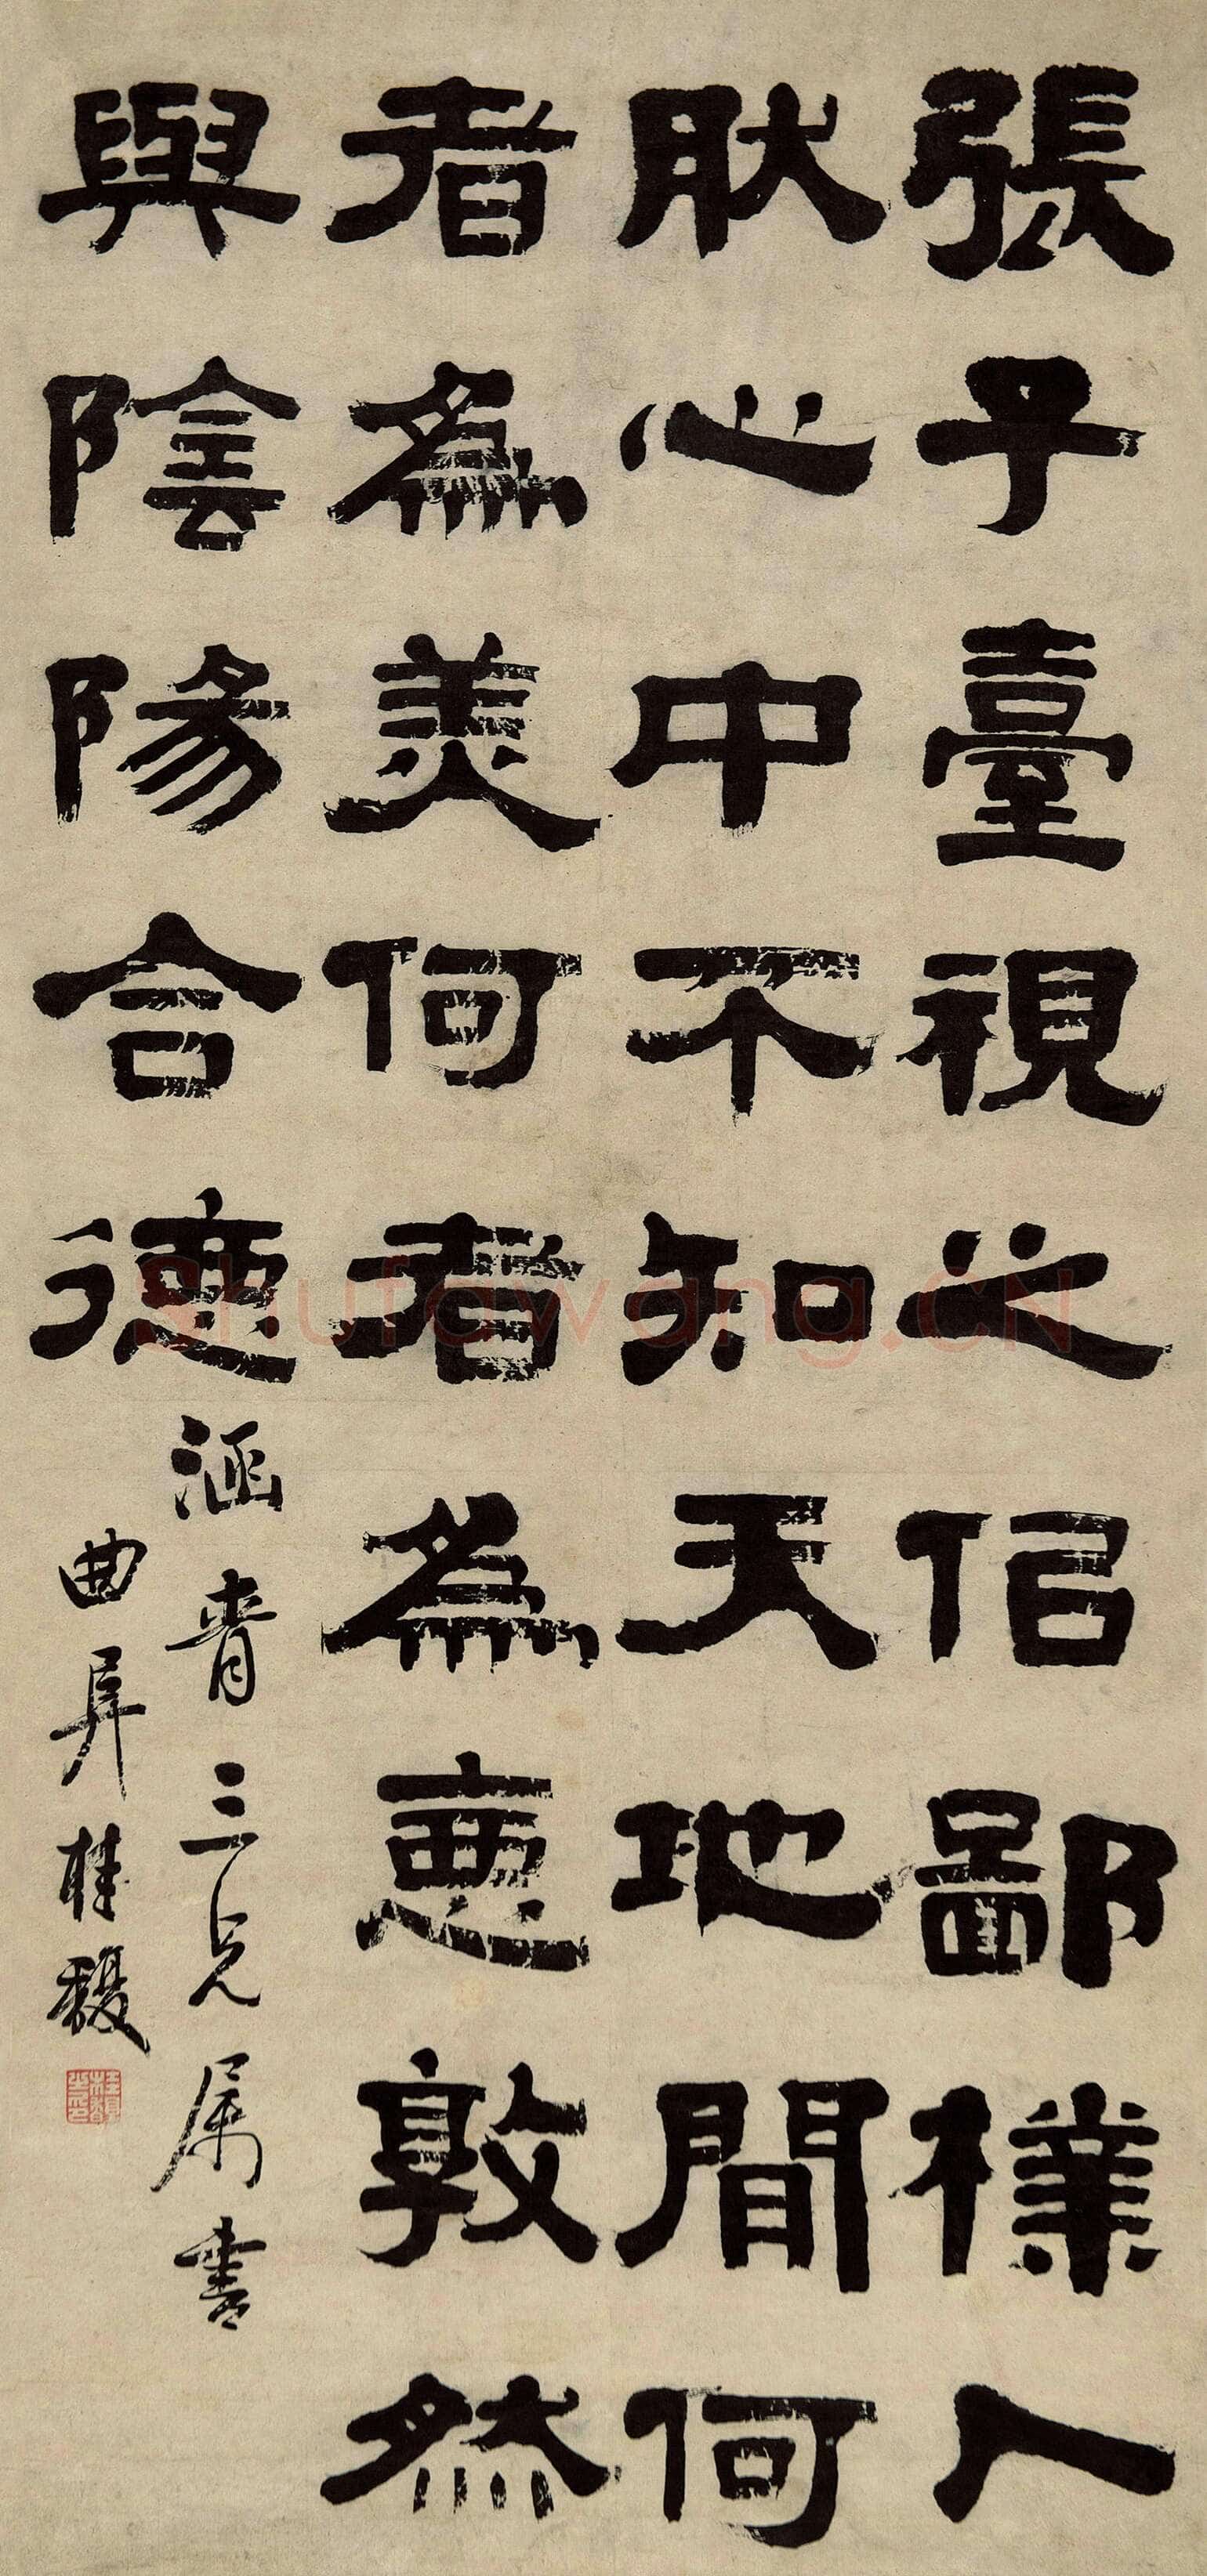 張子臺視之佀鄙樸人
肰心中不知天地間何
者為美何者為惡敦然
與陰陽合德
涵青三兄屬書
曲阜桂馥
Shufawang.CN